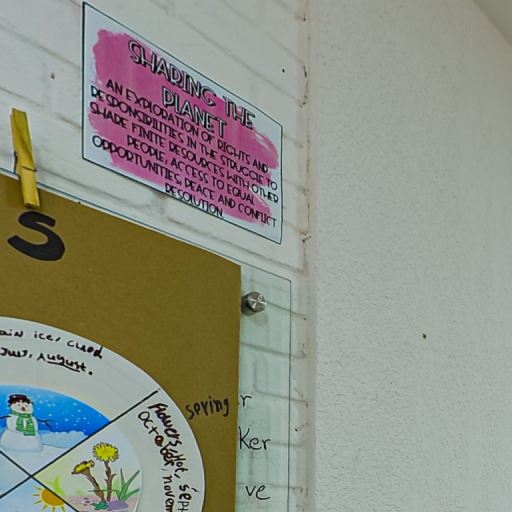 SHARING THE
PLANET
AN EXPLORATION OF RIGHTS AND
RESPONSIBILITIES IN THE STRUGGLE TO
SHARE FINITE RESOURCES WITH OTHER
PEOPLE, ACCESS TO EQUAL
OPPORTUNITIES, PEACE AND CONFLICT
RESOLUTION
S
ice, cloud
August.
spring
Flowers, Hot, sept
October novem
r
ker
ve